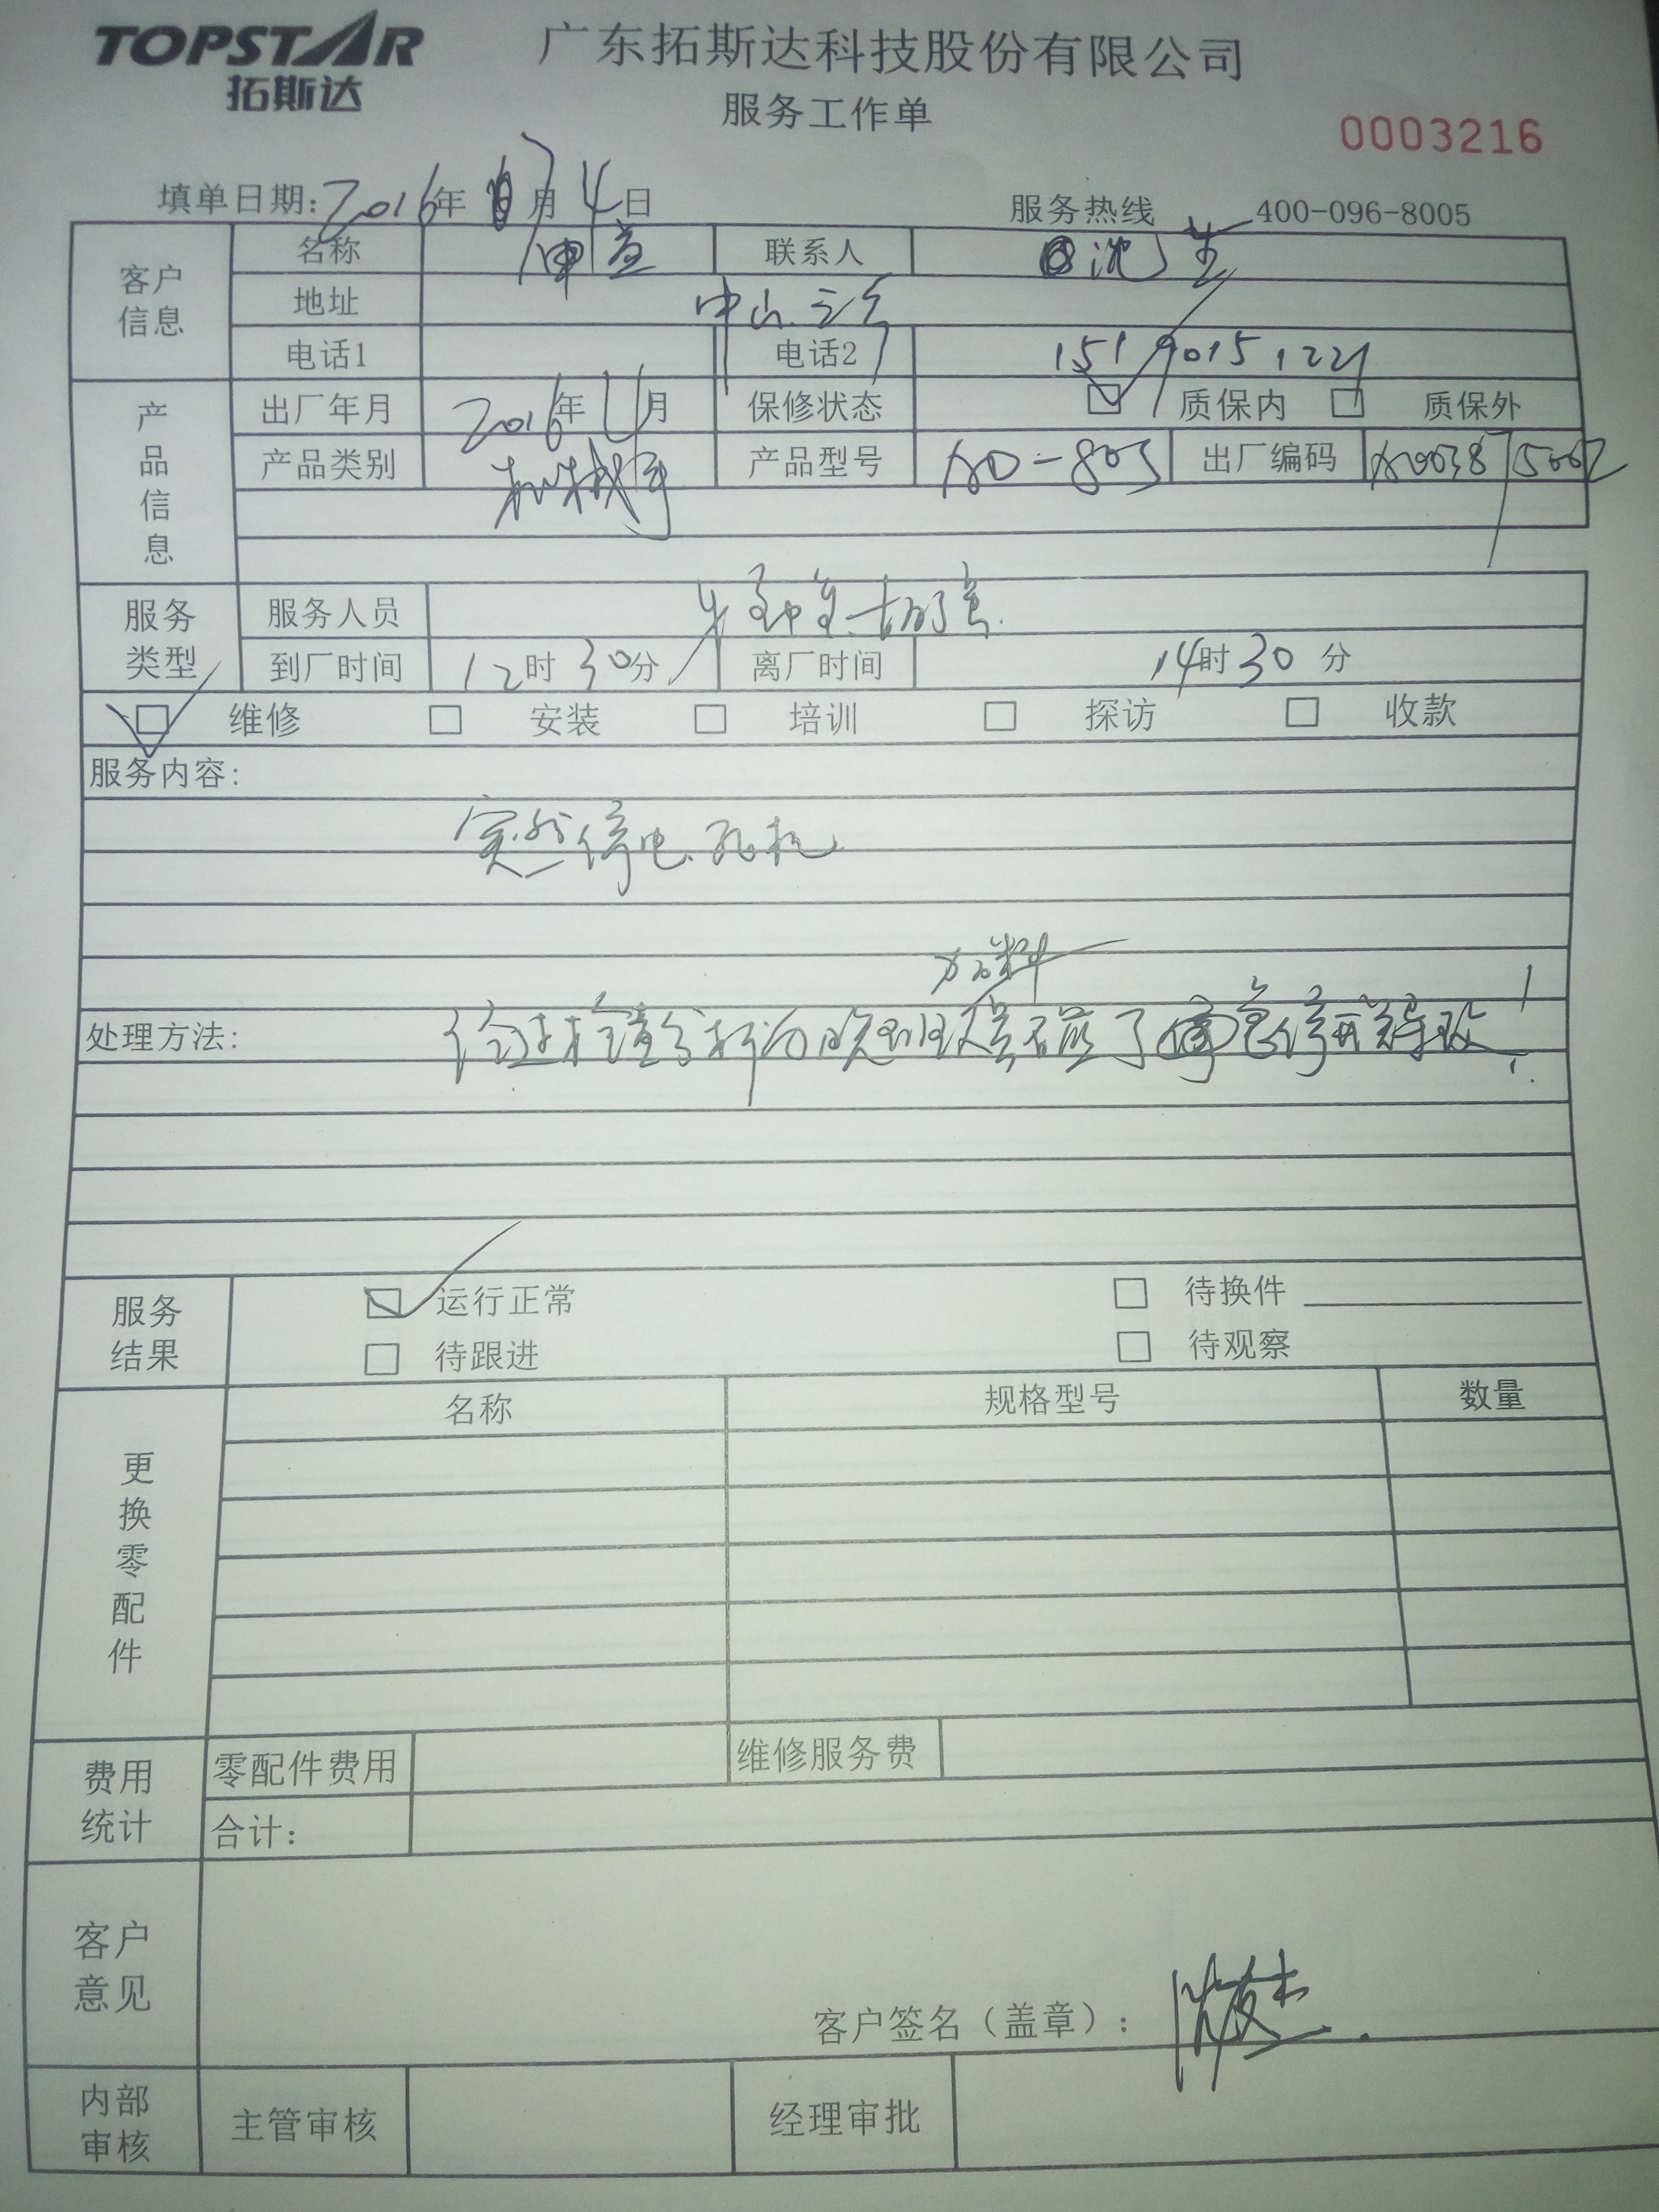 TOPSTAR
拓斯达
广东拓斯达科技股份有限公司
服务工作单
0003216
填单日期: 2016年 7月 4日
服务热线 400-096-8005
客户信息
名称
联系人 沈生
地址 中山.三乡
电话1
电话2 151 9015 1221
产品信息
出厂年月 2016年 月
保修状态 质保内 质保外
产品类别 机械手
产品型号
出厂编码
服务类型
服务人员
到厂时间 12时 30分
离厂时间 14时 30 分
维修 安装 培训 探访 收款
服务内容:
突然停电.死机
加料
处理方法: 经过检查分析为晚班 误碰了 急停开关导致!
服务结果
运行正常 待换件
待跟进 待观察
更换零配件
名称 规格型号 数量
费用统计
零配件费用 维修服务费
合计:
客户意见
客户签名（盖章）:
内部审核
主管审核 经理审批